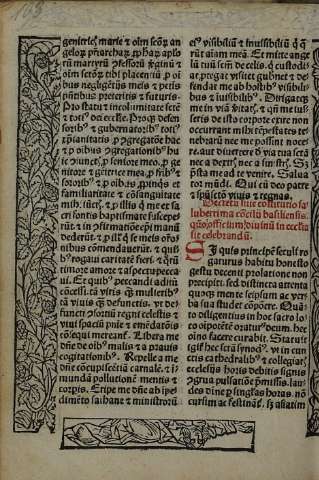 163
genitricis marie et oīm sctōꝝ an
geloꝝ prīarchaꝝ ꝓphaꝝ aplo
rū martyrū ꝯfessoꝝ v̓ginū et
oīm sctōꝝ tibi placentiū ꝓ oī
bus negligētijs meis et pctīs
ptibus preteritis et futuris
Pro statu et incolumitate sctē
et toti⁹ dei eccl̓ie. Pro oīb⁹ defen
soribꝰ et gubernatoribꝰ toti⁹
xp̄ianitatis ꝓ ꝯgregatōe hac
et ꝓ oībus ꝯgregationibꝰ hu
ic ꝓ seniore meo, ꝓ ge
nitore et genitrice mea, ꝓ frībꝰ et
sororibꝰ et ꝓ oībus
familiaritate et cōsanguitate
mihi iūctis, et ꝓ illis
cri fontis baptismate suscepe
rūt et in ꝯfirmatiōe manū
dederūt, et ꝓ illis q̄ se meis orō
nibus cōmendauerūt, et qui
bꝰ rogaui caritate fieri,
timore amore et aspectu pecca
ui. Et quibꝰ peccandi aditū
cōtuli tā viris q̄ȝ mulieribꝰ
tā viuis q̄ȝ defunctis, vt de
functi ꝯsortiū regni celestis et
viui spaciū pnīe et emēdatiōis
cōsequi mereant̄. Libera me
dn̄e de oībꝰ malis et a ꝓauis
cogitationibꝰ. Repelle a me
dn̄e cōcupiscētiā carnalē. et i
mundā pollutionē mentis et
corporis. Eripe me dn̄e ab īpe
dimēto sathane et ministrorū
eiꝰ visibiliū et inuisibiliū
rūt aīam meā. Et mitte angel
lū tuū sctm̄ de celis, q̄ custodi
at, ptegat visitet gubnet et de
fendat me ab hostibꝰ visibili
bus et īuisibilibꝰ. Dirigatqȝ
me in viā vitā, et qn̄ me iusse
ris de isto corpore exire non
occurrant mihi tēpestates te
nebrarū nec me possint noce
re, aut diuertere a via tua sctā
nec a dextris, nec a sinistris, s̄
psta me ad te venire. Salua
tor mūdi. Qui cū deo patre
et spūsctō viuis et regnas.
Decretū siue cōstitutio sa
luberrima cōcilij basiliensis,
quō officium diuinū in ecclesia
sit celebrandū.
Siquis principē seculi ro
gaturus habitu honesto
gestu decenti prolatione non
precipiti, sed distincta attenta
quoqȝ mente seipsum ac ver
ba sua studet cōponere. Quā
to diligentius in hoc sacro lo
co oīpotētē oraturꝰ deum, hec
oīno facere curabit. Statuit
igit̄ hec sctā synodꝰ, vt in cun
ctis cathedralibꝰ et collegiat̄
ecclesijs horis debitis signis
ꝯgrua pulsatiōe p̄missis, lau
des diuine ꝑ singulas horas, nō
cursim ac festināt̄, s̄ asiatim